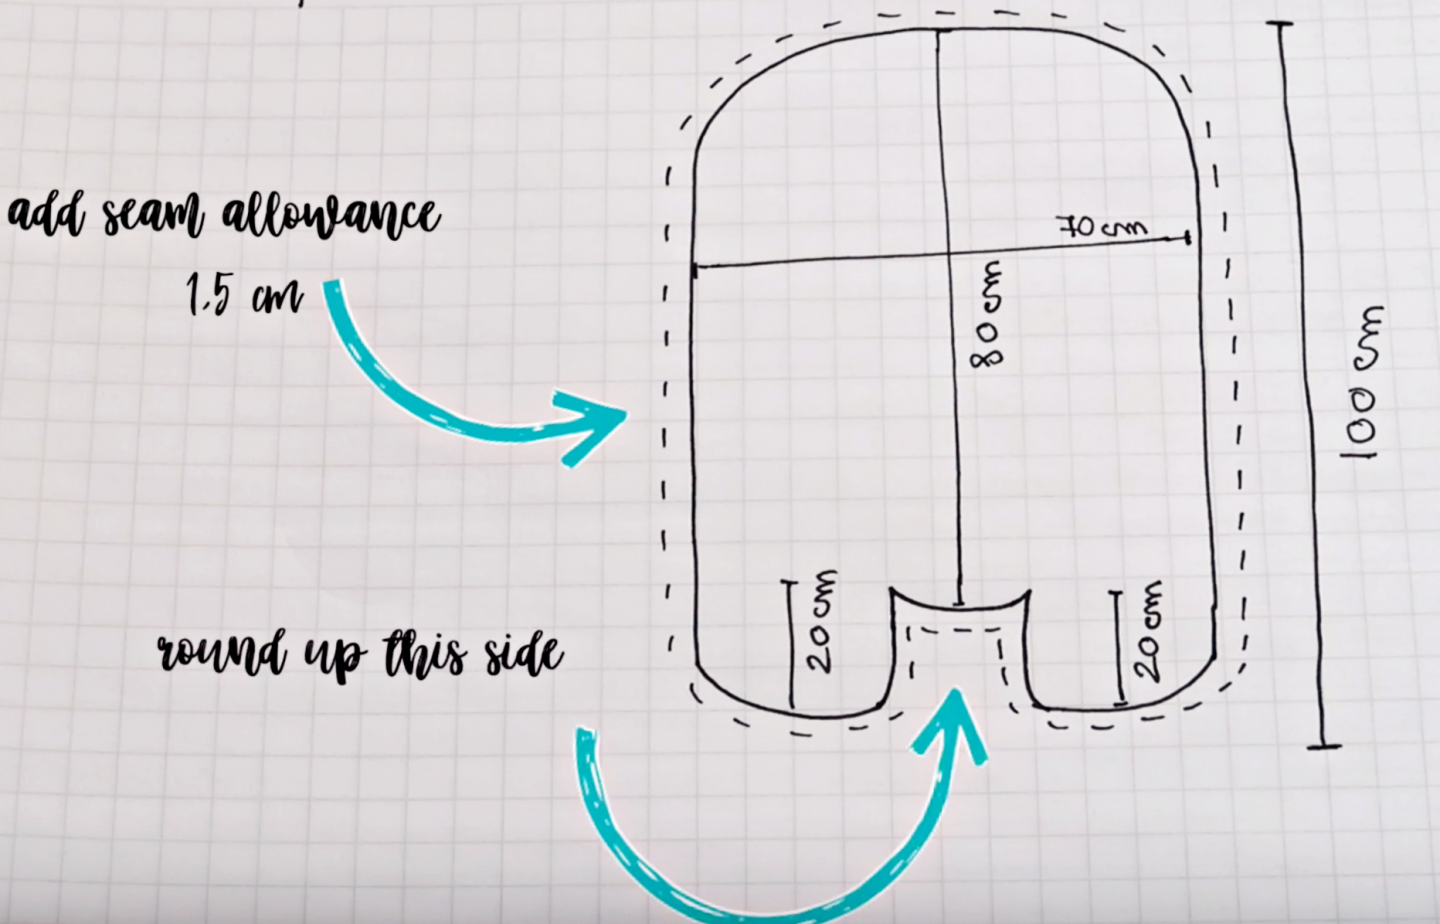 add seam allowance
1,5 cm
70 cm
80 cm
100 cm
20 cm
20 cm
round up this side